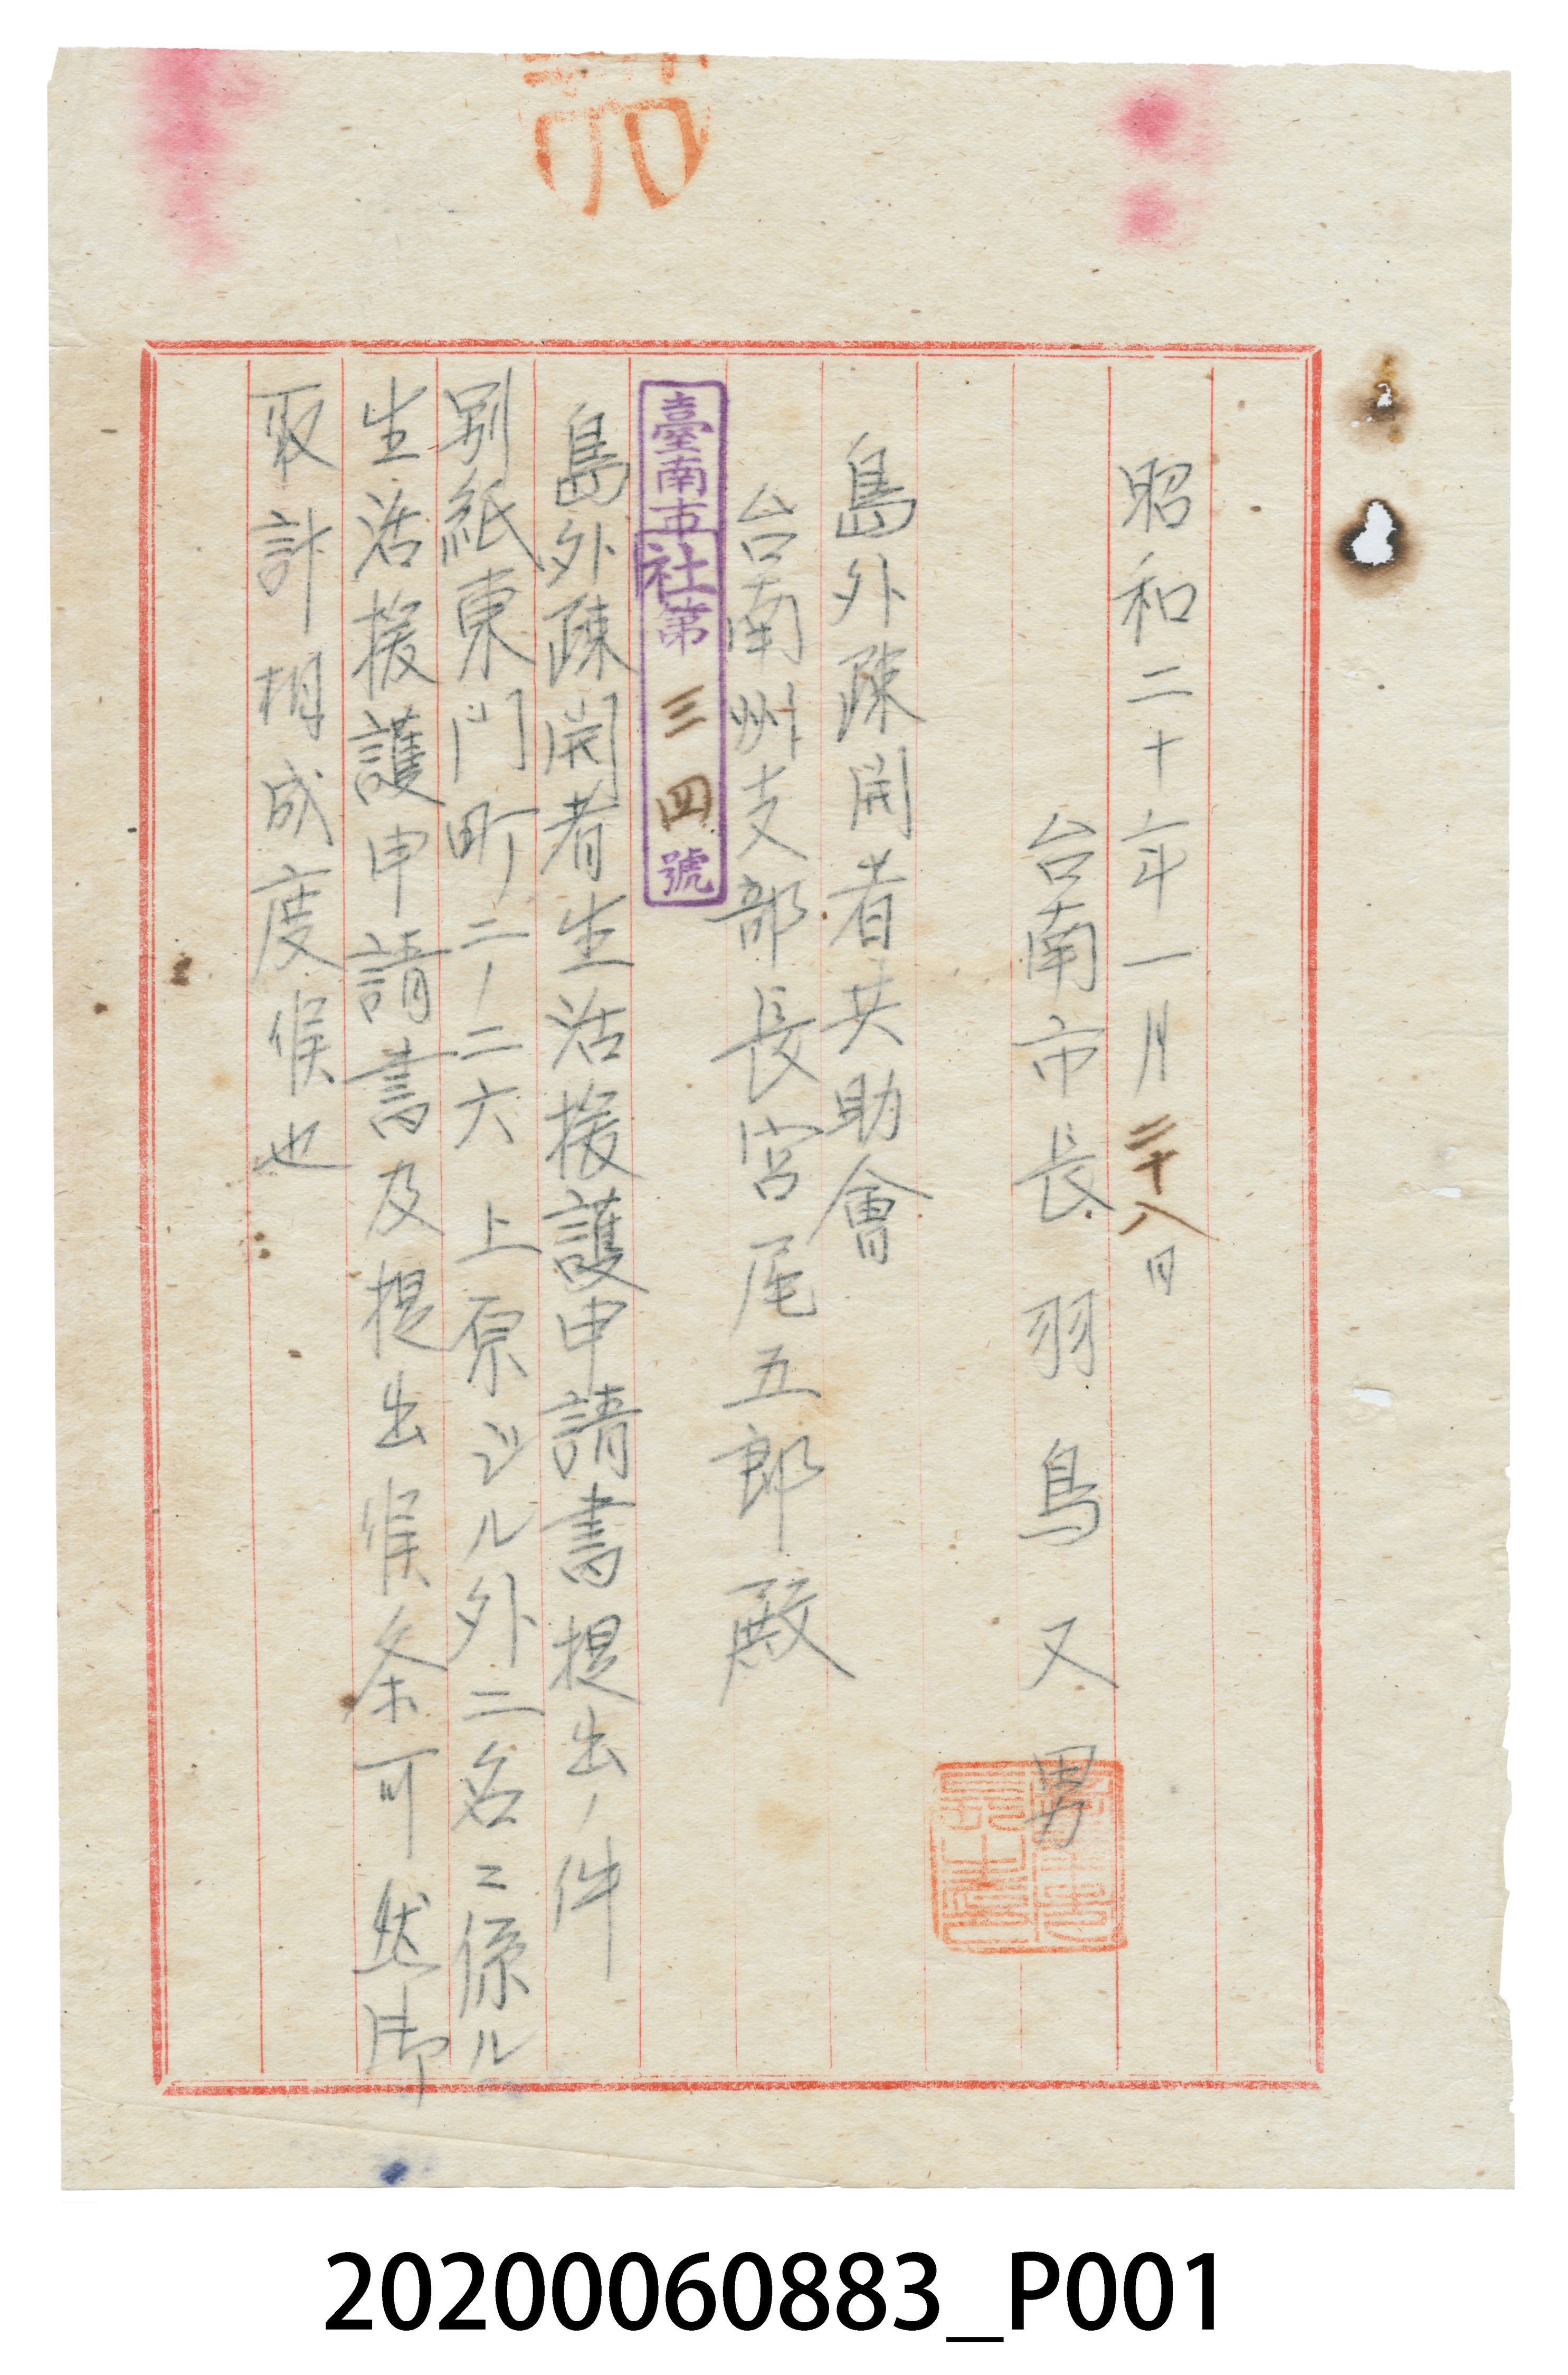 昭和二十年一月二十八日
台南市長羽鳥又男
島外疎開者共助會
台南州支部長宮尾五郎殿
臺南市社第三四號
島外疎開者生活援護申請書提出ノ件
別紙東門町二ノ二六 上原ジル外二名ニ係ル
生活援護申請書及提出候条可然御
取計相成度候也
20200060883_P001